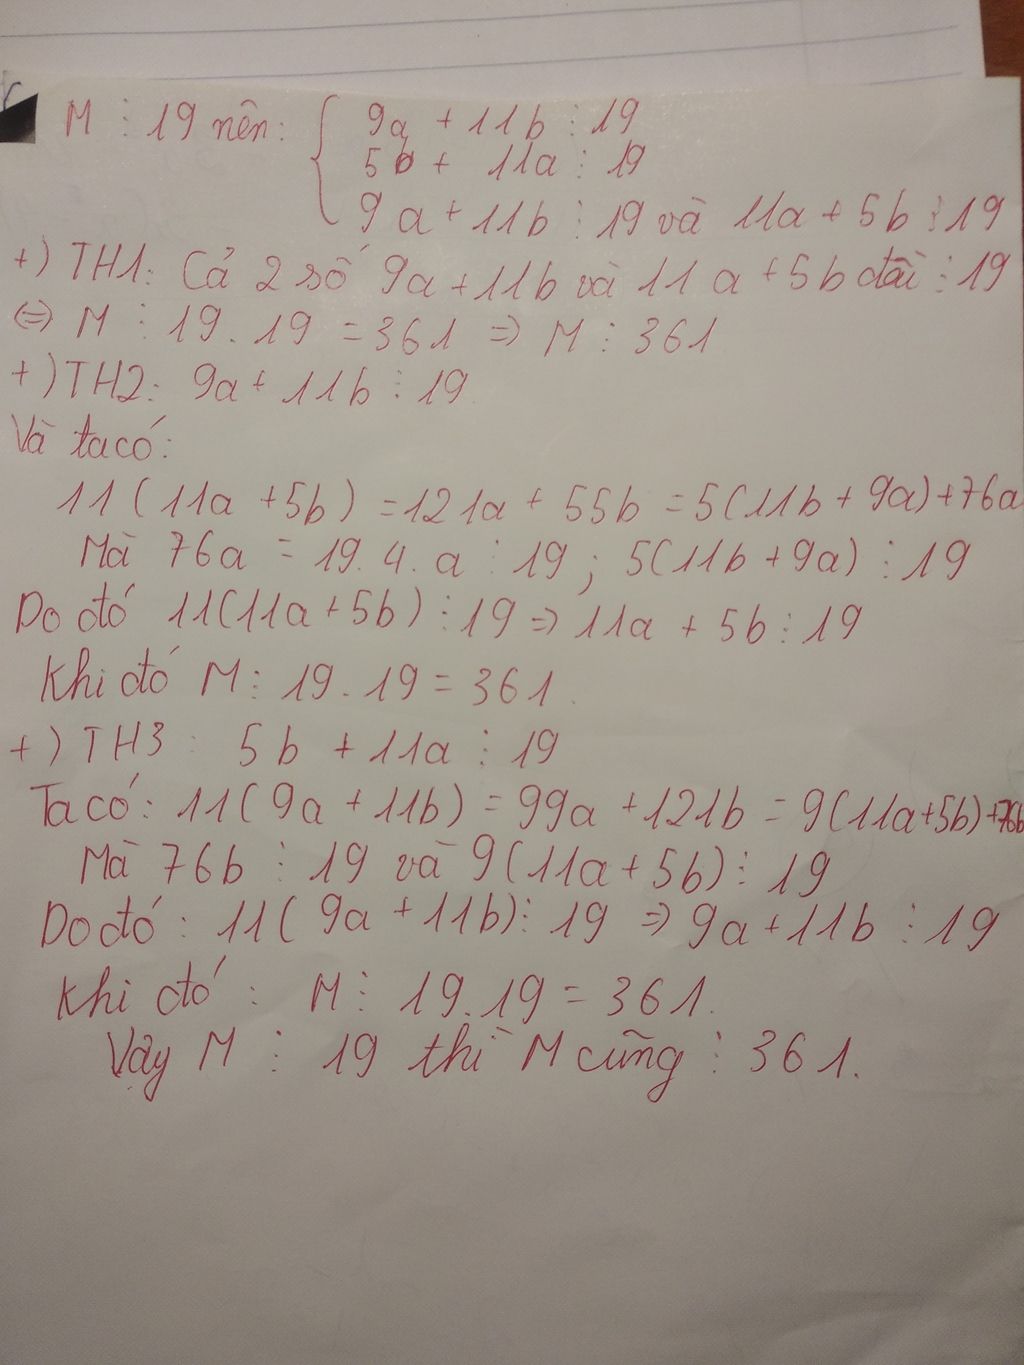 M ⋮ 19 nên: { 9a + 11b ⋮ 19
5b + 11a ⋮ 19
9a + 11b ⋮ 19 và 11a + 5b ⋮ 19
+) TH1: Cả 2 số 9a + 11b và 11a + 5b đều ⋮ 19
⇔ M ⋮ 19.19 = 361 ⇒ M ⋮ 361
+) TH2: 9a + 11b ⋮ 19
Và ta có:
11(11a + 5b) = 121a + 55b = 5(11b + 9a) + 76a
Mà 76a = 19.4.a ⋮ 19 ; 5(11b + 9a) ⋮ 19
Do đó 11(11a + 5b) ⋮ 19 ⇒ 11a + 5b ⋮ 19
Khi đó M ⋮ 19.19 = 361.
+) TH3: 5b + 11a ⋮ 19
Ta có: 11(9a + 11b) = 99a + 121b = 9(11a+5b)+76b
Mà 76b ⋮ 19 và 9(11a + 5b) ⋮ 19
Do đó: 11(9a + 11b) ⋮ 19 ⇒ 9a + 11b ⋮ 19
Khi đó: M ⋮ 19.19 = 361.
Vậy M ⋮ 19 thì M cũng ⋮ 361.